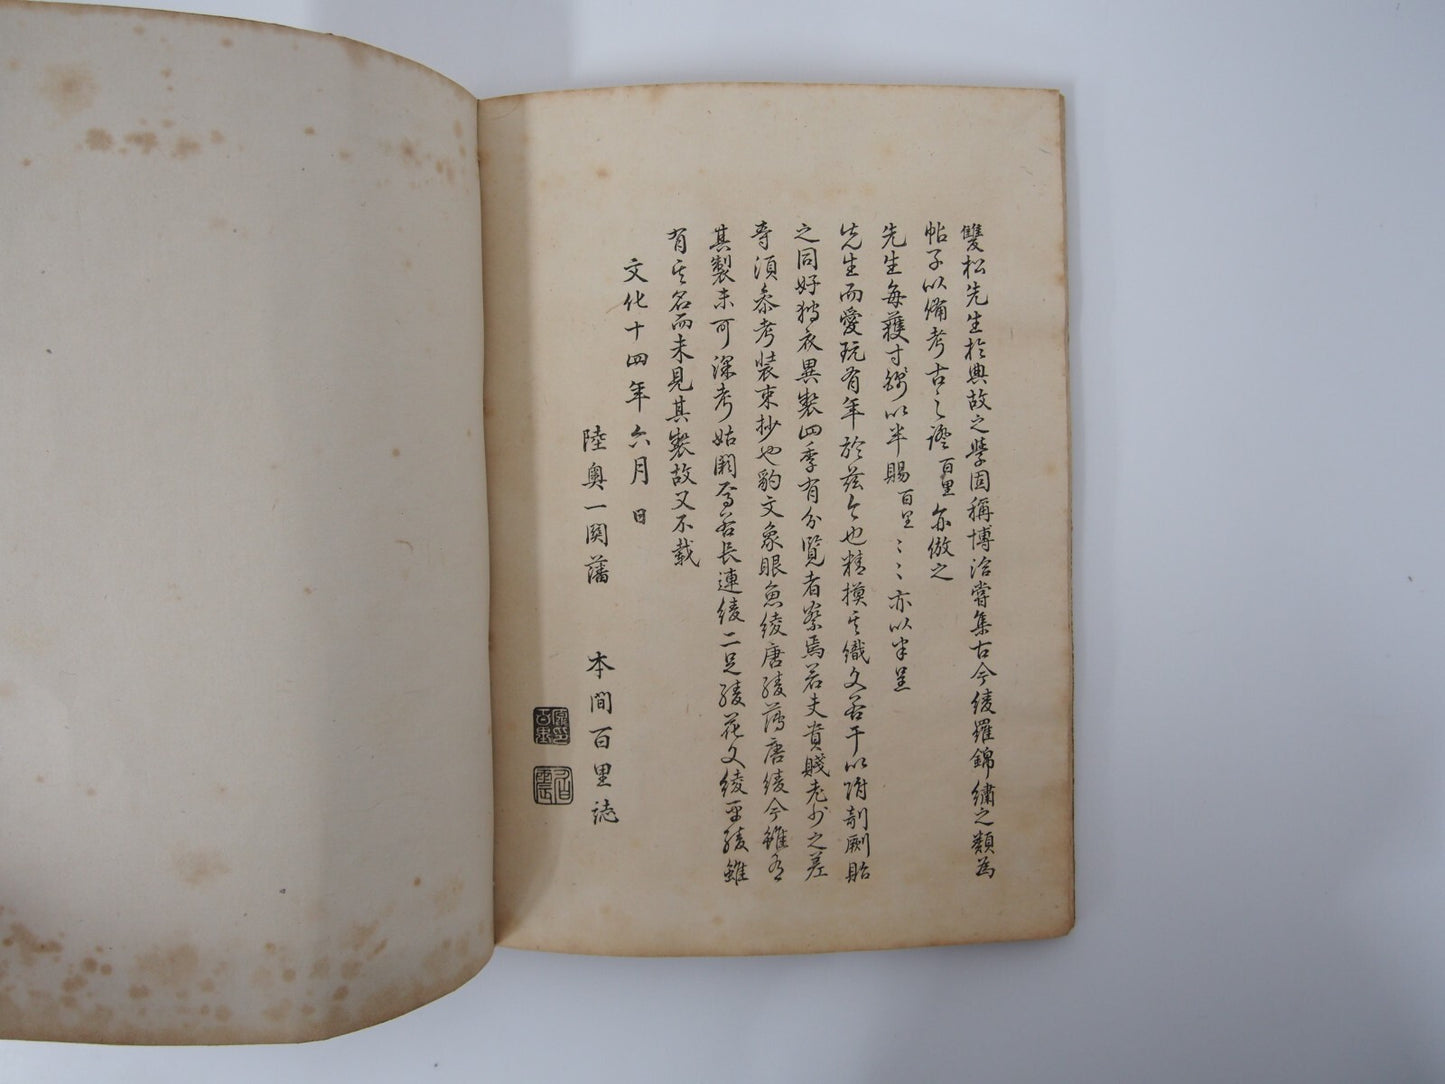 雙松先生於典故之學固稱博洽嘗集古今綾羅錦繡之類為
帖子以備考古之證百里亦倣之
先生每獲寸錦以半賜百里〻〻亦以半呈
先生而愛玩有年於茲今也精摸其織文若干以附剞劂貽
之同好狩衣異製四季有分覽者察焉若夫貴賤老少之差
等須參考裝束抄也豹文象眼魚綾唐綾薄唐綾今雖有
其製未可深考姑闕焉若長連綾二足綾花文綾平綾雖
有其名而未見其製故又不載
文化十四年六月 日
陸奧一關藩 本間百里誌